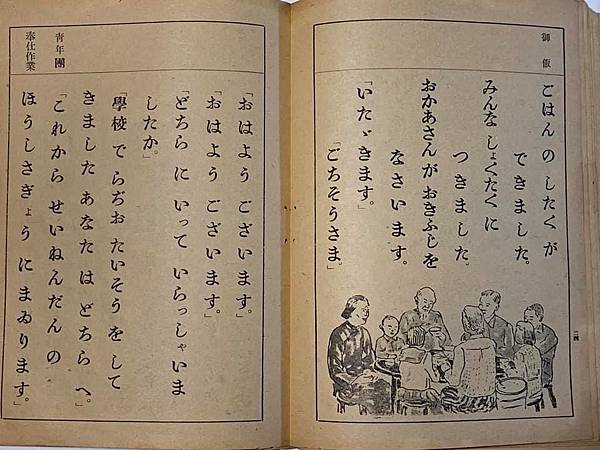 御飯
ごはん の したく が
できました。
みんな しょくたく に
つきました。
おかあさんが おきふじを
なさいます。
「いたゞきます。」
「ごちそうさま。」
二四
靑年團
奉仕作業
「おはよう ございます。」
「おはよう ございます。」
「どちら に いって いらっしゃいま
したか。」
「學校 で らぢお たいそう を して
きました あなた は どちら へ。」
「これから せいねんだん の
ほうしさぎょう に まゐります。」